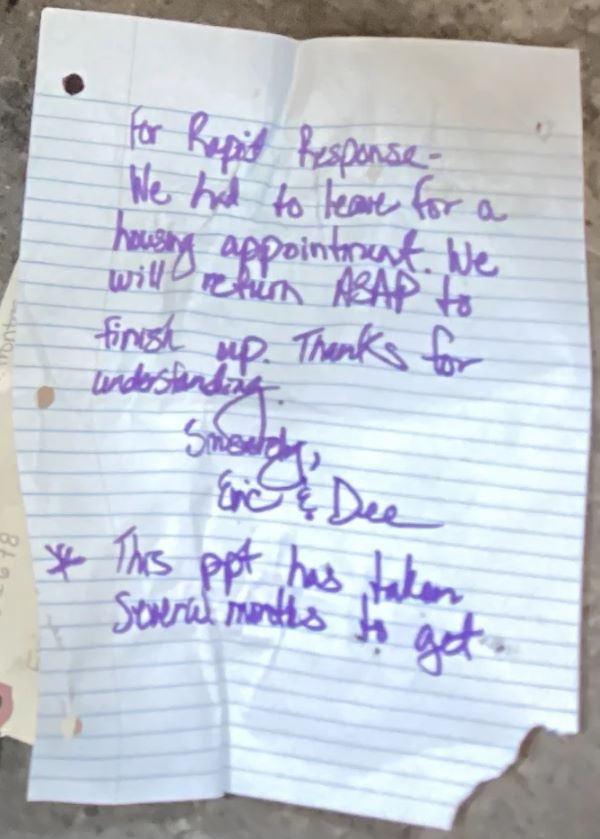 For Rapid Response-
We had to leave for a
housing appointment. We
will return ASAP to
finish up. Thanks for
understanding.
Sincerely,
Eric & Dee
* This ppt has taken
several months to get
2678